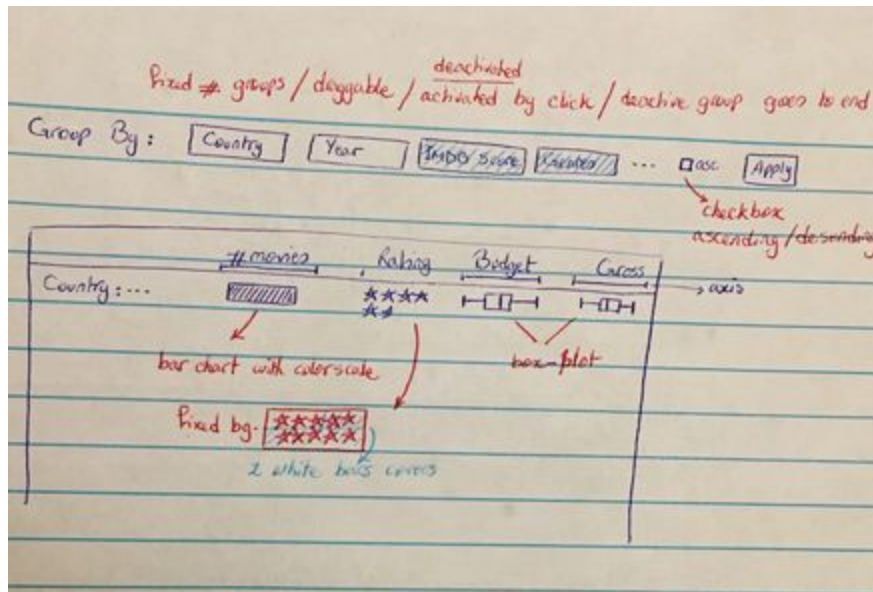 fixed # groups / daggable / deactivated
activated by click / deactive group goes to end
Group By: Country Year IMDB Score ... asc Apply
checkbox
ascending/desending
#movies Rating Budget Gross
axis
Country: ...
bar chart with colorscale
box-plot
fixed bg.
2 white bars covers